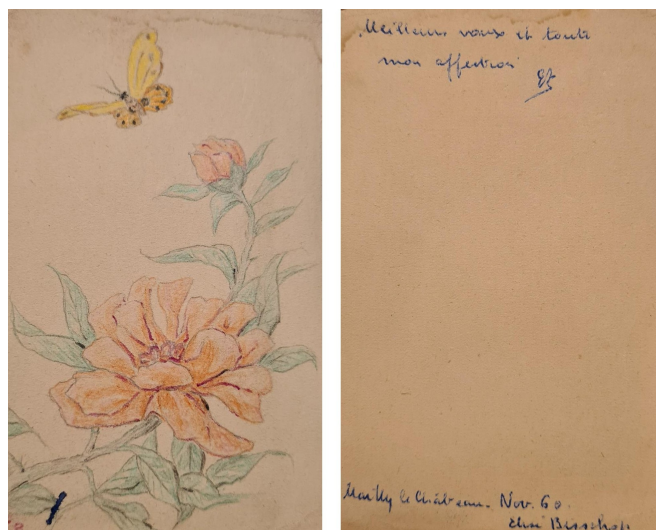 Meilleurs vœux et toute
mon affection
Mailly le Château. Nov. 60.
Elise Bisschop